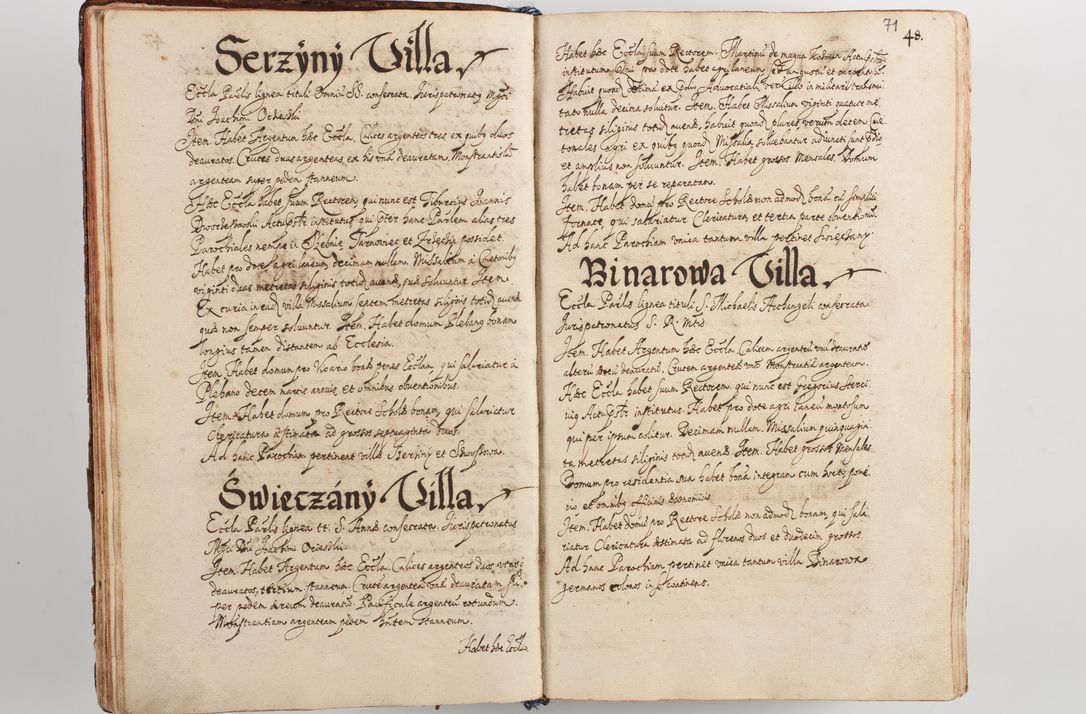 Serzýný Villa
Eccla Parlis lignea tituli Omniũ SS. consecrata Iurispatronatq Mgci
Dni Joachim Ocieski
Item. Habet Argentum hæc Eccla, Calices argenteos tres ex quibq duos
deauratos. Cruces duas argenteas, ex his vna deauratam, Monstrantiolã
argenteam super pedem stanneum.
Hæc Eccla habet suum Rectorem, qui nunc est Tiburcius Joannis
institutus qui pter hanc Parlem alias tres
Parochiales nempe in Szebnie, Tarnowiec et possidet.
Habet pro dote agri laneum, decimam nullam. Missalium à Cmetonibq
viginti duas metretas siliginis totid auenæ, soluuntur. Item
Ex curia villæ Missalium septem metretas siliginis totid auenæ
quæ non semper soluuntur. Item. Habet domum Plebanq bonam
longius tamen distantem ab Ecclesia.
Item. Habet domum pro Vicario bonã penes Ecclam, qui salariatur à
Plebano decem marcis annuis et omnibus obuentionibus.
Item. Habet domum pro Rectore Scholæ bonam, qui salariatur
Clericatura æstimata ad grossos septuaginta duos.
Ad hanc Parochiam pertinent villæ Serziny et
Święczáný Villa
Eccla Parlis lignea tt: S. Annæ consecrata. Iurispatronatus
Mgci Dni Joachimi Ocieski.
Item. Habet Argentum hæc Eccla. Calices argenteos duos, vtrosq
deauratos, tertium stanneum. Cruce argentea vna deauratam
per pedem æreum deauratũ. Pacificale argenteũ rotundum.
Monstrantiam argenteam pedem hntem stanneum.
Habet hæc Eccla
71
48.
Habet hæc Eccla suum Rectorem, Martinũ de magna Actu
institutum. Qui pro dote habet agri laneum, et
Habuit quond decima ex Advocatiali, verũ illo in militari
tate nulla decima soluitur. Item. Habet Missalium viginti quatuor me
tretas siliginis totid auenæ, habuit quond plures, verum decem Cme
tonales agri ex quibq quond Missalia soluebantur adiuncti sunt
et amplius non soluuntur. Item. Habet grossos Mensales. Domum
habet bonam per se reparatam.
Item. Habet domũ pro Rectore Scholæ non admod bona cũ simplici
fornace, qui salariatur Clericatura et tertia parte obuentionũ.
Ad hanc Parochiam vnica tantum villa pertinet Swięczany.
Binarowa Villa
Eccla Parlis lignea tituli, S. Michaelis Archangeli consecrata
Iurispatronatus S. R. Mtis
Item. Habet Argentum hæc Eccla. Calicem argenteũ vnũ deauratũ
alterũ deauratũ. Crucem argenteã vnã. Monstrantiã argenteam.
Hæc Eccla habet suum Rectorem, qui nunc est Gregorius
institutus. Habet pro dote agri laneũ montosum
qui per ipsum colitur. Decimam nullam. Missalium quinquagin
ta metretas siliginis totid auenæ. Item. Habet grossos Mensales
Domum pro residentia sua habet bonã integram cum horto pone
rio et omnibq officinis œconomicis.
Item. Habet domũ pro Rectore Scholæ non admod bonam, qui sala
riatur Clericatura æstimata ad florenos duos et duodecim grossos.
Ad hanc Parochiam pertinet vnica tantum villa Binarowa
germanos colonos in se continens.